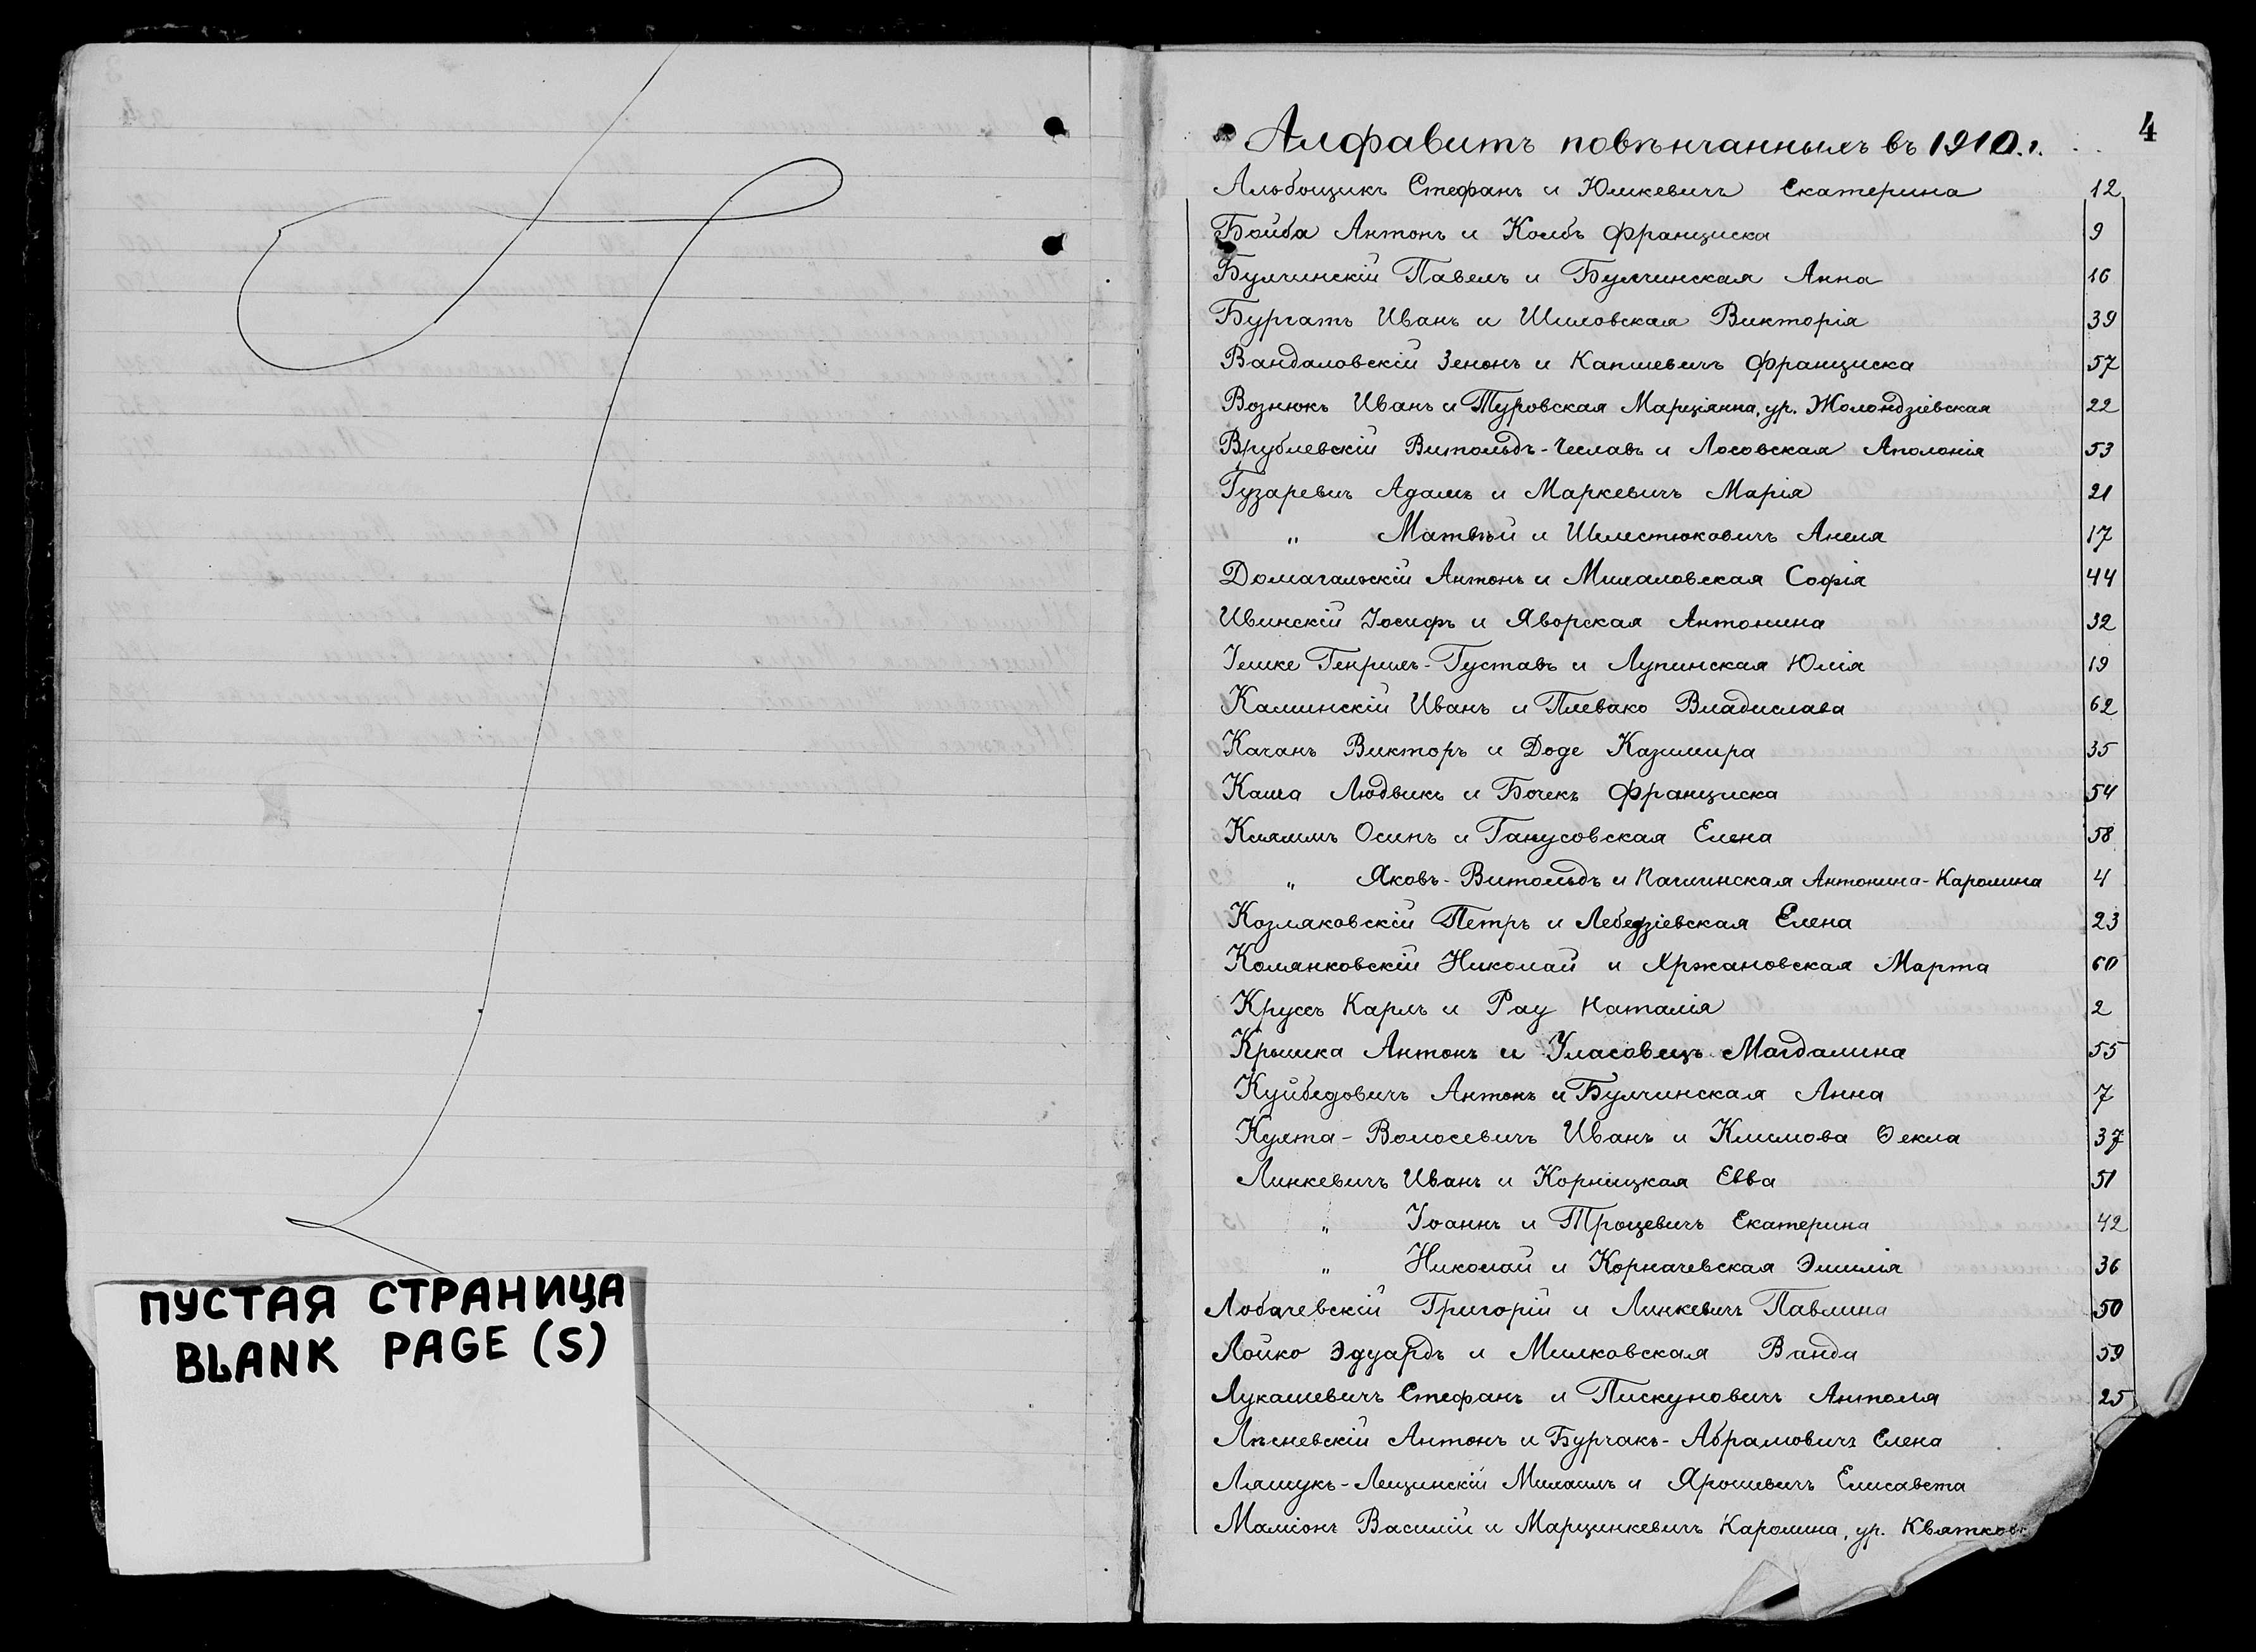 ПУСТАЯ СТРАНИЦА
BLANK PAGE (S)
4
Алфавитъ повѣнчаннымъ въ 1910.г.
Альбощикъ Стефанъ и Юшкевичъ Екатерина 12
Бойба Антонъ и Колбъ Франциска 9
Булчинскій Павелъ и Булчинская Анна 16
Бургатъ Иванъ и Шиловская Викторія 39
Вандаловскій Зенонъ и Капшевичъ Франциска 57
Вознюкъ Иванъ и Туровская Марціанна, ур. Жолондзіевская 22
Врублевскій Витольдъ-Чеславъ и Лосовская Аполонія 53
Гузаревичъ Адамъ и Маркевичъ Марія 21
„ Матвѣй и Шеместюковичъ Анеля 17
Домагальскій Антонъ и Михаловская Софія 44
Ивинскій Іосифъ и Яворская Антонина 32
Іешке Генрихъ-Густавъ и Лупинская Юлія 19
Каминскій Иванъ и Плевако Владислава 62
Качанъ Викторъ и Доде Казимира 35
Каша Людвикъ и Бочекъ Франциска 54
Киямъ Осипъ и Ганусовская Елена 58
„ Яковъ-Витольдъ и Качинская Антонина-Каролина 4
Козляковскій Петръ и Лебедзіевская Елена 23
Колянковскій Николай и Хржановская Марта 60
Круссъ Карлъ и Рау Наталія 2
Крышка Антонъ и Уласовецъ Магдалина 55
Куйбедовичъ Антонъ и Булчинская Анна 7
Култа-Волосевичъ Иванъ и Климова Ѳекла 37
Линкевичъ Иванъ и Корницкая Евва 51
„ Іоаннъ и Троцевичъ Екатерина 42
„ Николай и Корначевская Эмилія 36
Лобачевскій Григорій и Линкевичъ Павлина 50
Лойко Эдуардъ и Милковская Ванда 59
Лукашевичъ Стефанъ и Пискуновичъ Антоля 25
Лѣсневскій Антонъ и Бурчакъ-Абрамовичъ Елена
Ляшукъ-Лещинскій Михаилъ и Ярошевичъ Елисавета
Маліонъ Василій и Марцинкевичъ Каролина, ур. Квятков